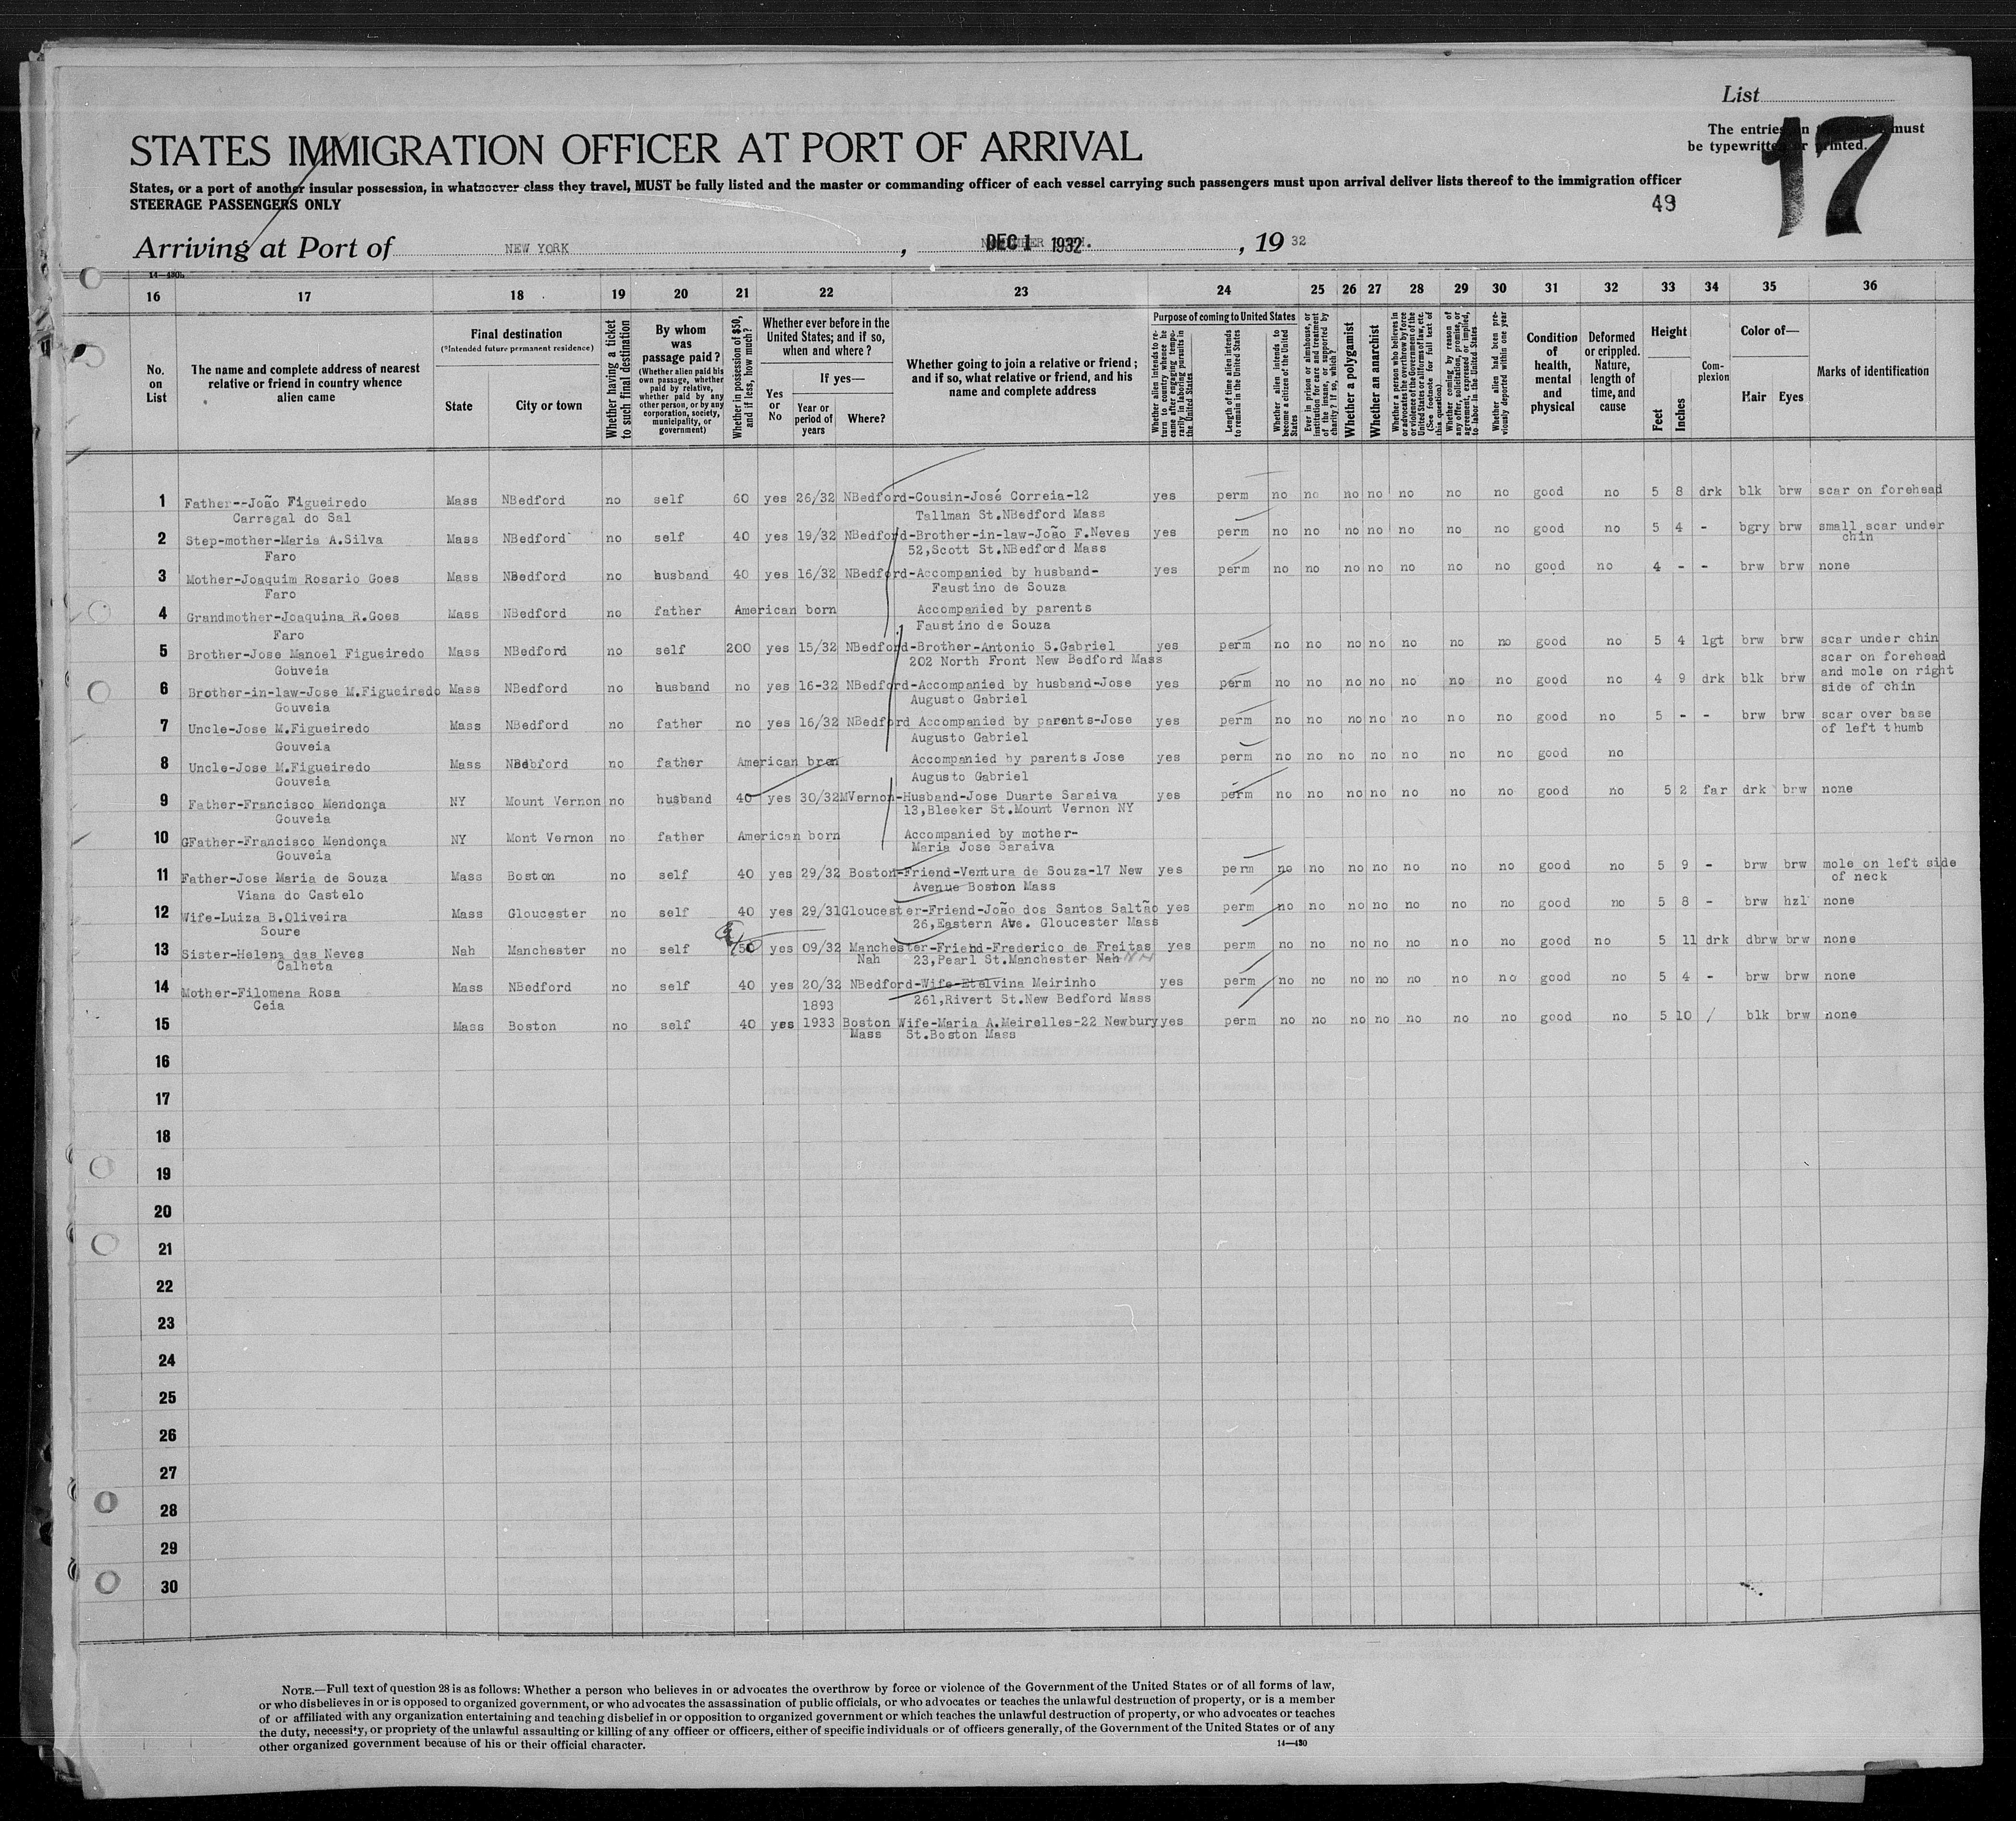 List
The entries on must
be typewritten or printed.
17
STATES IMMIGRATION OFFICER AT PORT OF ARRIVAL
States, or a port of another insular possession, in whatsoever class they travel, MUST be fully listed and the master or commanding officer of each vessel carrying such passengers must upon arrival deliver lists thereof to the immigration officer
STEERAGE PASSENGERS ONLY
49
Arriving at Port of NEW YORK , DEC 1 1932 , 19 32
14—430b
16 17 18 19 20 21 22 23 24 25 26 27 28 29 30 31 32 33 34 35 36
No. on List
The name and complete address of nearest relative or friend in country whence alien came
Final destination
(*Intended future permanent residence)
State
City or town
Whether having a ticket to such final destination
By whom was passage paid?
(Whether alien paid his own passage, whether paid by relative, whether paid by any other person, or by any corporation, society, municipality, or government)
Whether in possession of $50, and if less, how much?
Whether ever before in the United States; and if so, when and where?
Yes or No
If yes—
Year or period of years
Where?
Whether going to join a relative or friend; and if so, what relative or friend, and his name and complete address
Purpose of coming to United States
Whether alien intends to return to country whence he came after engaging temporarily in laboring pursuits in the United States
Length of time alien intends to remain in the United States
Whether alien intends to become a citizen of the United States
Ever in prison or almshouse, or institution for care and treatment of the insane, or supported by charity? If so, which?
Whether a polygamist
Whether an anarchist
Whether a person who believes in or advocates the overthrow by force or violence of the Government of the United States or all forms of law, etc. (See footnote for full text of this question)
Whether coming by reason of any offer, solicitation, promise, or agreement, expressed or implied, to labor in the United States
Whether alien had been previously deported within one year
Condition of health, mental and physical
Deformed or crippled. Nature, length of time, and cause
Height
Feet
Inches
Complexion
Color of—
Hair
Eyes
Marks of identification
1 Father--João Figueiredo Mass NBedford no self 60 yes 26/32 NBedford-Cousin-José Correia-12 yes perm no no no no no no no good no 5 8 drk blk brw scar on forehead
Carregal do Sal Tallman St.NBedford Mass
2 Step-mother-Maria A.Silva Mass NBedford no self 40 yes 19/32 NBedford-Brother-in-law-João F.Neves yes perm no no no no no no no good no 5 4 - bgry brw small scar under
chin
Faro 52,Scott St.NBedford Mass
3 Mother-Joaquim Rosario Goes Mass NBedford no husband 40 yes 16/32 NBedford-Accompanied by husband- yes perm no no no no no no no good no 4 - - brw brw none
Faro Faustino de Souza
4 Grandmother-Joaquina R.Goes Mass NBedford no father American born Accompanied by parents
Faro Faustino de Souza
5 Brother-Jose Manoel Figueiredo Mass NBedford no self 200 yes 15/32 NBedford-Brother-Antonio S.Gabriel yes perm no no no no no no no good no 5 4 lgt brw brw scar under chin
Gouveia 202 North Front New Bedford Mass
scar on forehead
6 Brother-in-law-Jose M.Figueiredo Mass NBedford no husband no yes 16-32 NBedford-Accompanied by husband-Jose yes perm no no no no no no no good no 4 9 drk blk brw and mole on right
side of chin
Gouveia Augusto Gabriel
7 Uncle-Jose M.Figueiredo Mass NBedford no father no yes 16/32 NBedford Accompanied by parents-Jose yes perm no no no no no no no good no 5 - - brw brw scar over base
of left thumb
Gouveia Augusto Gabriel
8 Uncle-Jose M.Figueiredo Mass NBedford no father American bren Accompanied by parents Jose yes perm no no no no no no no good no
Gouveia Augusto Gabriel
9 Father-Francisco Mendonça NY Mount Vernon no husband 40 yes 30/32 MVernon-Husband-Jose Duarte Saraiva yes perm no no no no no no no good no 5 2 far drk brw none
Gouveia 13,Bleeker St.Mount Vernon NY
10 GFather-Francisco Mendonça NY Mont Vernon no father American born Accompanied by mother-
Gouveia Maria Jose Saraiva
11 Father-Jose Maria de Souza Mass Boston no self 40 yes 29/32 Boston-Friend-Ventura de Souza-17 New yes perm no no no no no no no good no 5 9 - brw brw mole on left side
of neck
Viana do Castelo Avenue Boston Mass
12 Wife-Luiza B.Oliveira Mass Gloucester no self 40 yes 29/31 Gloucester-Friend-João dos Santos Saltão yes perm no no no no no no no good no 5 8 - brw hzl none
Soure 26,Eastern Ave. Gloucester Mass
13 Sister-Helena das Neves Nah Manchester no self 50 yes 09/32 Manchester-Friend-Frederico de Freitas yes perm no no no no no no no good no 5 11 drk dbrw brw none
Calheta Nah 23,Pearl St.Manchester Nah
14 Mother-Filomena Rosa Mass NBedford no self 40 yes 20/32 NBedford-Wife-Etelvina Meirinho yes perm no no no no no no no good no 5 4 - brw brw none
Ceia 261,Rivert St.New Bedford Mass
1893
15 Mass Boston no self 40 yes 1933 Boston Wife-Maria A.Meirelles-22 Newbury yes perm no no no no no no no good no 5 10 / blk brw none
Mass St.Boston Mass
16
17
18
19
20
21
22
23
24
25
26
27
28
29
30
NOTE.—Full text of question 28 is as follows: Whether a person who believes in or advocates the overthrow by force or violence of the Government of the United States or of all forms of law,
or who disbelieves in or is opposed to organized government, or who advocates the assassination of public officials, or who advocates or teaches the unlawful destruction of property, or is a member
of or affiliated with any organization entertaining and teaching disbelief in or opposition to organized government or which teaches the unlawful destruction of property, or who advocates or teaches
the duty, necessity, or propriety of the unlawful assaulting or killing of any officer or officers, either of specific individuals or of officers generally, of the Government of the United States or of any
other organized government because of his or their official character.
14—430